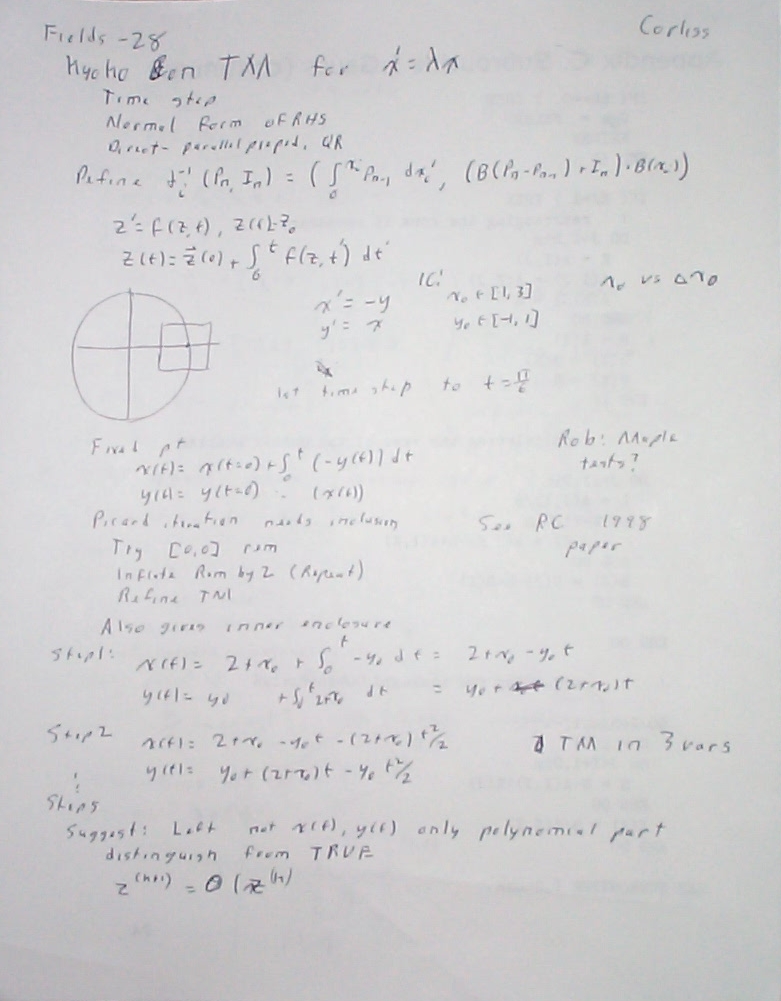 Fields -28
Corliss
Kyoko on TM for x' = λx
Time step
Normal form of RHS
Direct - parallelpiped, QR
Define ∂ᵢ⁻¹ (Pn, In) = ( ∫₀^xᵢ Pn-1 dxᵢ', (B(Pn - Pn-1) + In) · B(xᵢ))
z' = f(z,t), z(0) = z₀
z(t) = z(0) + ∫₀^t f(z,t') dt'
IC:
x' = -y x₀ ∈ [1,3] x₀ vs Δx₀
y' = x y₀ ∈ [-1,1]
1st time step to t = π/6
Fixed pt
x(t) = x(t=0) + ∫₀^t (-y(t)) dt
y(t) = y(t=0) : (x(t))
Rob: Maple
tests?
Picard iteration needs inclusion
See RC 1998
paper
Try [0,0] rem
Inflate Rem by 2 (Repeat)
Refine TM
Also gives inner enclosure
Step1: x(t) = 2+x₀ + ∫₀^t -y₀ dt = 2+x₀ - y₀t
y(t) = y₀ + ∫₀^t 2+x₀ dt = y₀ + (2+x₀)t
Step2 x(t) = 2+x₀ - y₀t - (2+x₀) t²/2
TM in 3 vars
y(t) = y₀ + (2+x₀)t - y₀ t²/2
:
Step5
Suggest: Left not x(t), y(t) only polynomial part
distinguish from TRUE
z^(n+1) = O(z^(n)